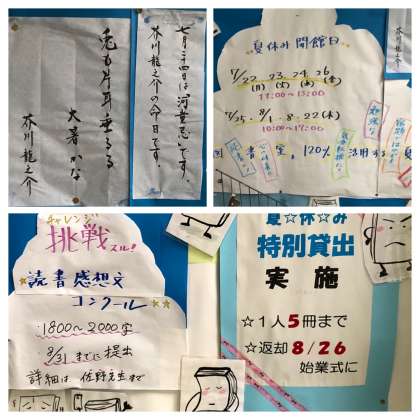 七月二十四日は「河童忌」です。
芥川龍之介の命日です。
兎も片耳垂るる
大暑かな
芥川龍之介
夏休み 開館日
7/22, 23, 24, 26
(月) (火) (水) (金)
11:00~15:00
7/25・8/1・8・22(木)
10:00~17:00
120% 活用する
チャレンジ
挑戦スル!
読書感想文
コンクール
・1800~2000字
・8/31までに提出
詳細は 佐野先生まで
夏☆休☆み
特別貸出
実施
☆1人5冊まで
☆返却8/26
始業式に